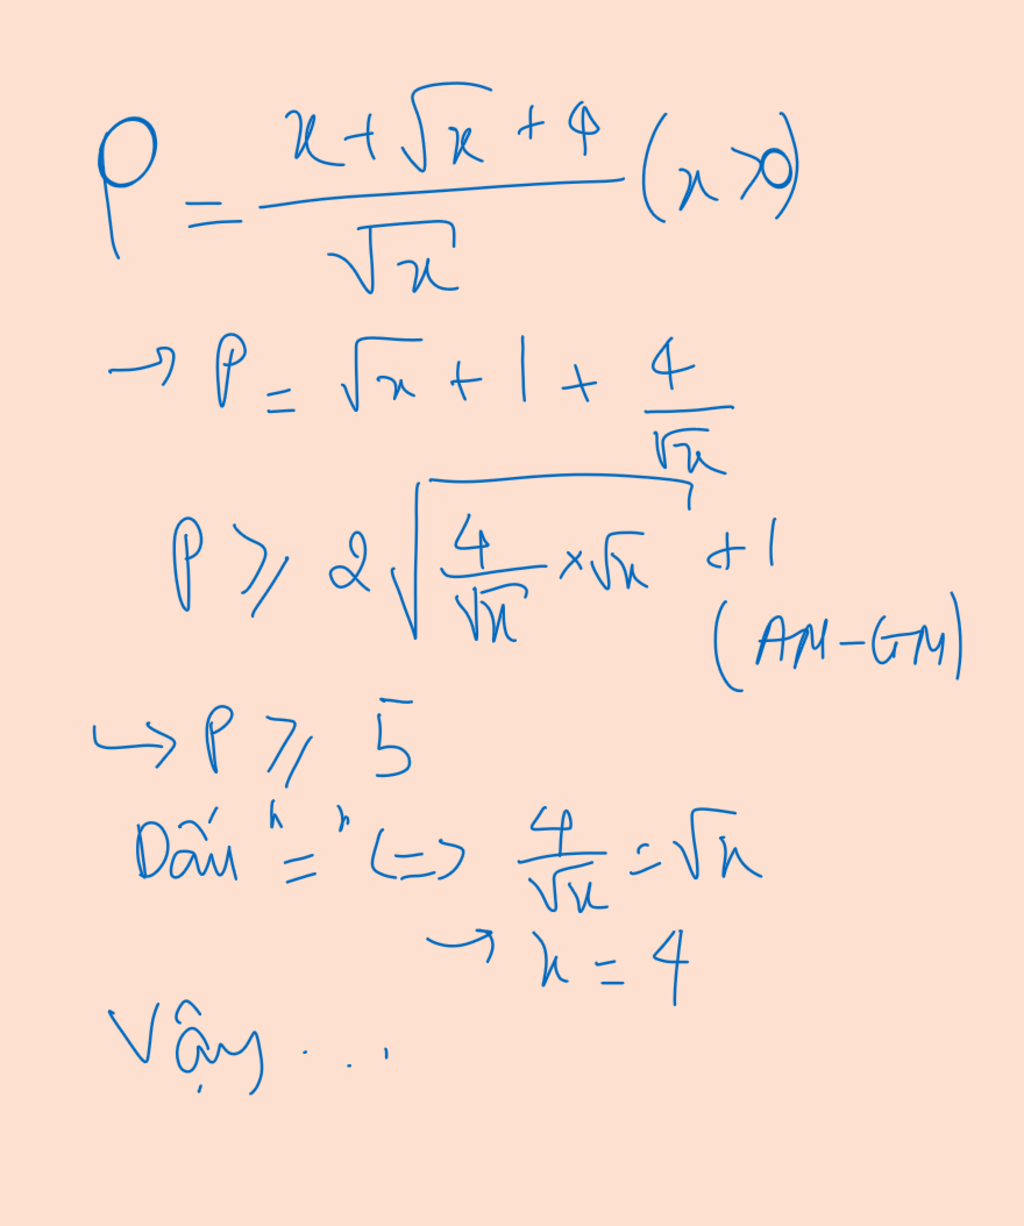 P = \frac{x + \sqrt{x} + 4}{\sqrt{x}} (x > 0)
→ P = \sqrt{x} + 1 + \frac{4}{\sqrt{x}}
P ⩾ 2\sqrt{\frac{4}{\sqrt{x}} × \sqrt{x}} + 1
(AM-GM)
↪ P ⩾ 5
Dấu "=" <=> \frac{4}{\sqrt{x}} = \sqrt{x}
→ x = 4
Vậy ...